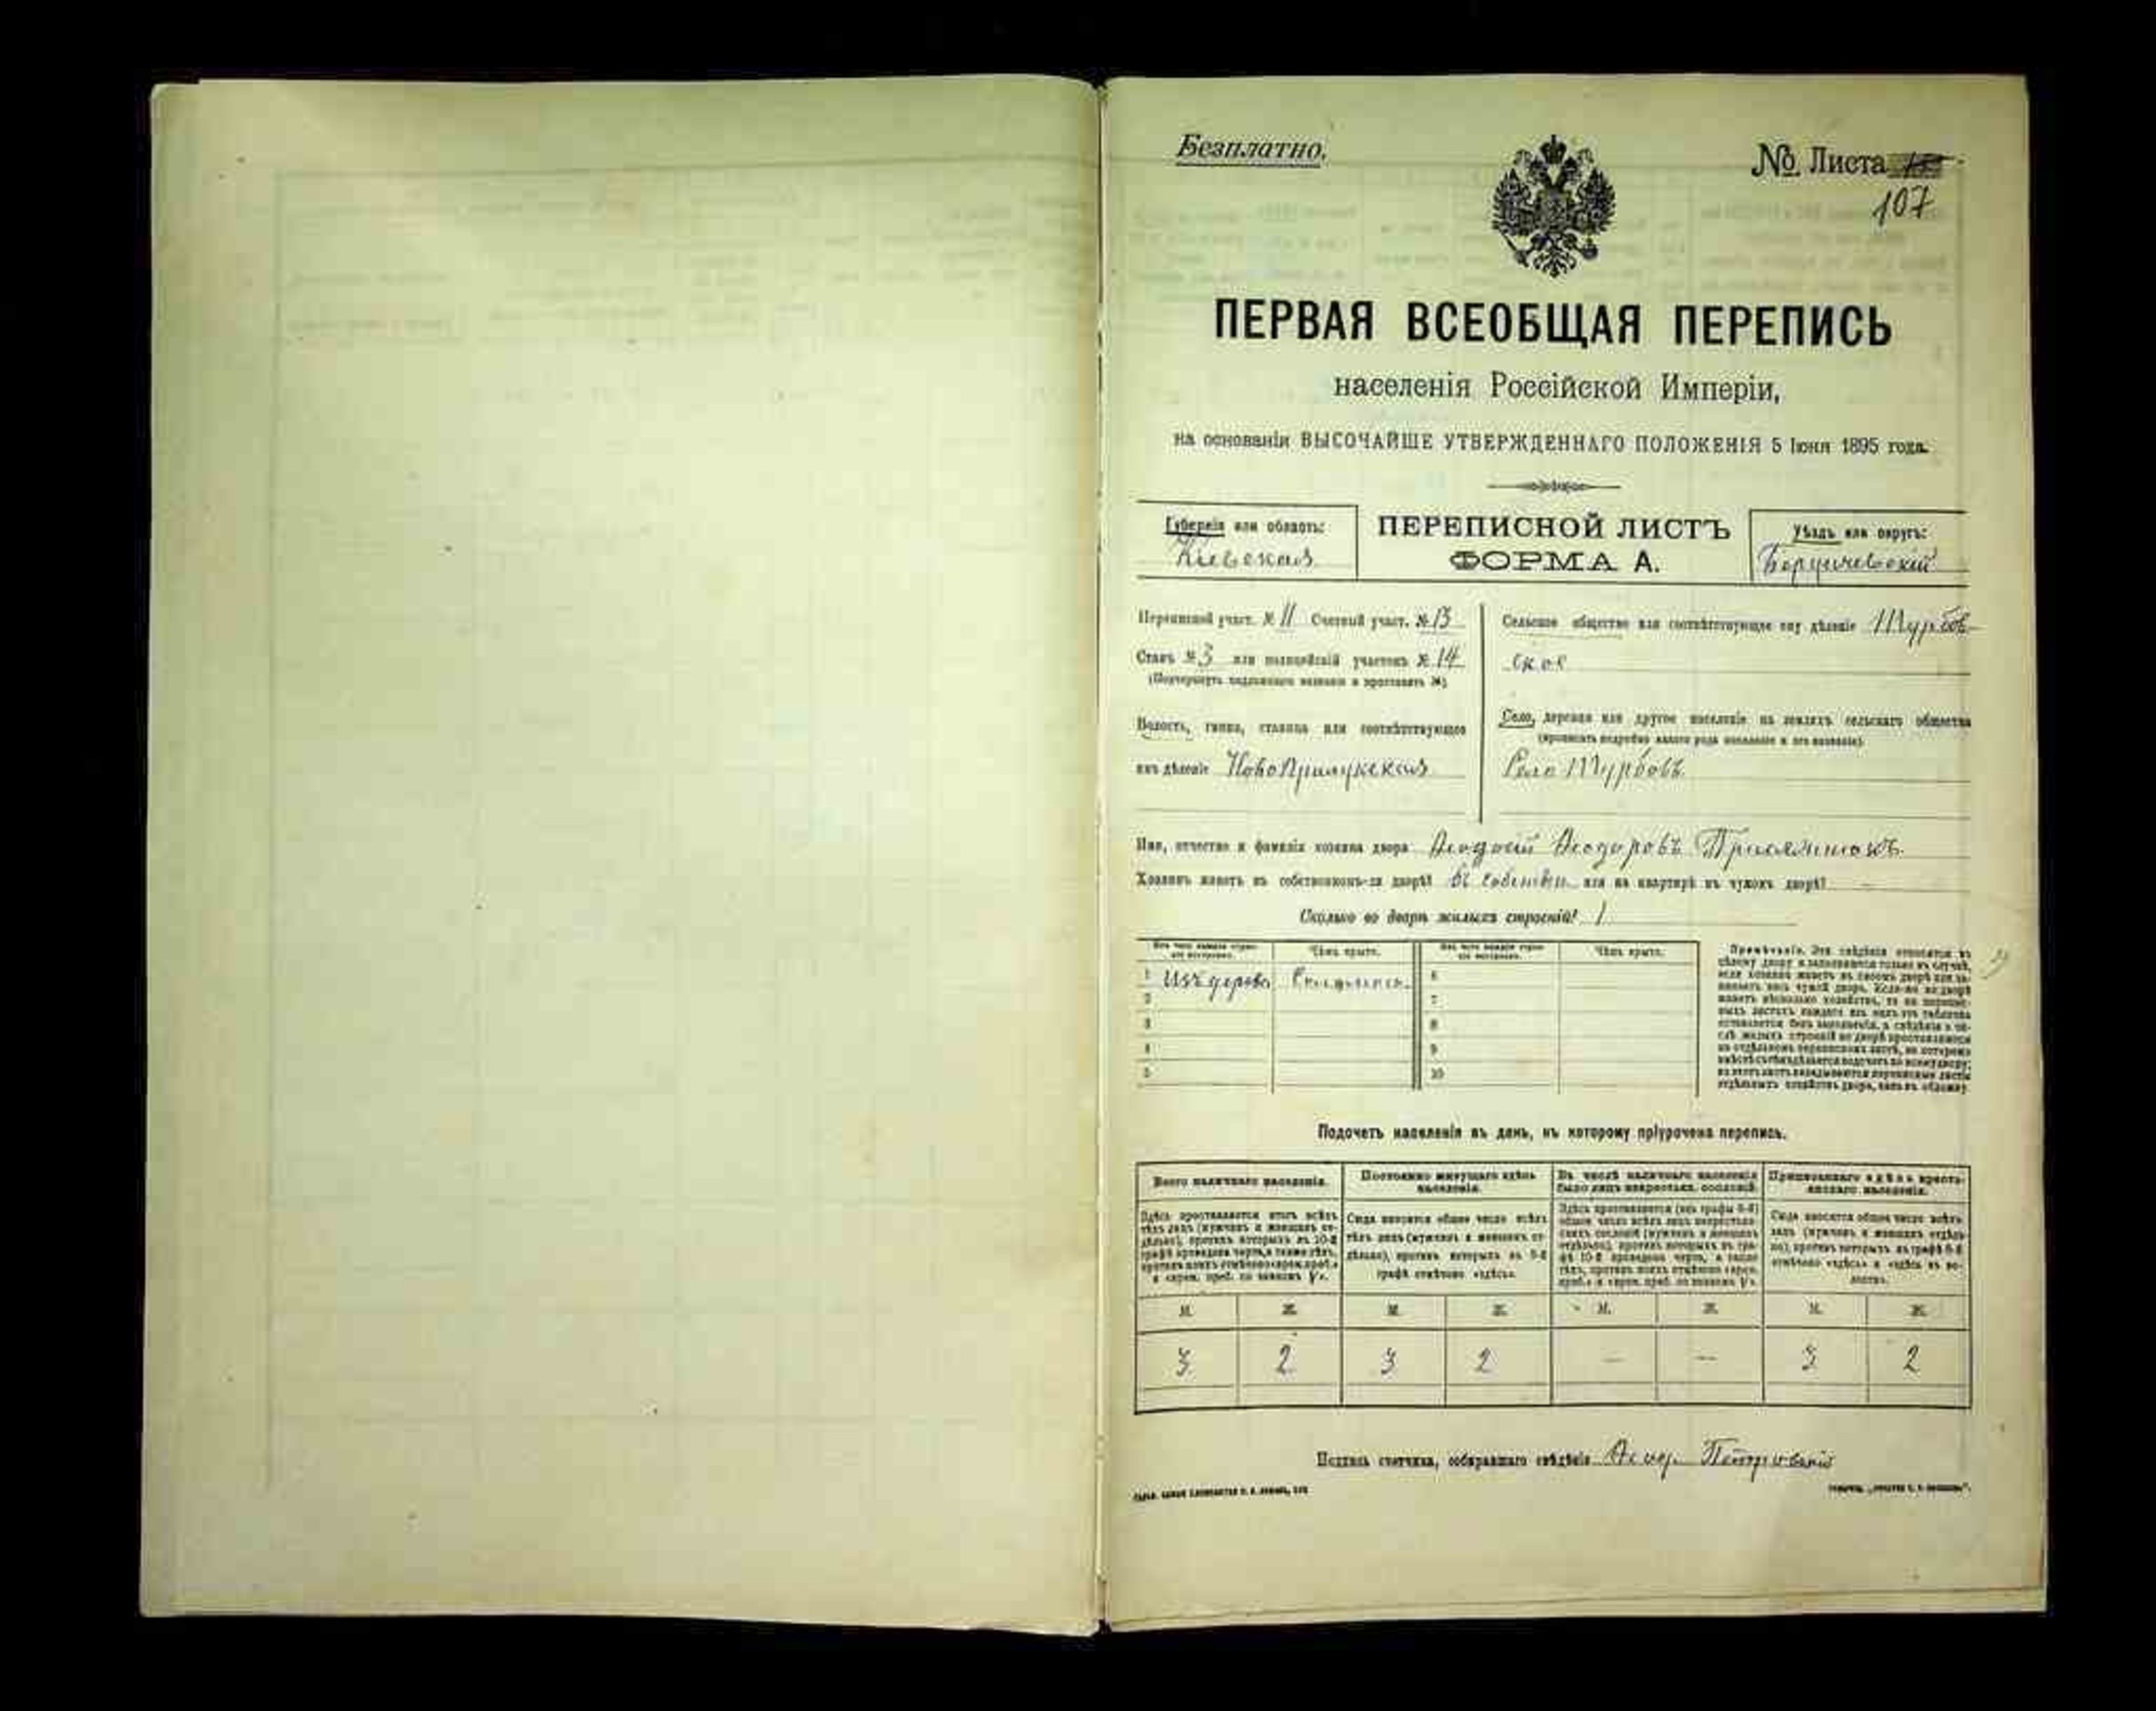 Безплатно.
№ Листа
107
ПЕРВАЯ ВСЕОБЩАЯ ПЕРЕПИСЬ
населенія Россійской Имперіи,
на основаніи ВЫСОЧАЙШЕ УТВЕРЖДЕННАГО ПОЛОЖЕНІЯ 5 Іюня 1895 года.
Губернія или область:
Кіевская
ПЕРЕПИСНОЙ ЛИСТЪ
ФОРМА А.
Уѣздъ или округъ:
Бердичевскій
Переписной участ. № 11 Счетный участ. № 13
Станъ № 3 или полицейскій участокъ № 14
(Подчеркнуть надлежащее названіе и проставить №).
Волость, гмина, станица или соотвѣтствующее
имъ дѣленіе Новоприлукская
Сельское общество или соотвѣтствующее ему дѣленіе Турбов-
ское
Село, деревня или другое поселеніе на земляхъ сельскаго общества
(прописать подробно какого рода поселеніе и его названіе).
Село Турбовъ
Имя, отчество и фамилія хозяина двора Ѳеодосій Ѳеодоровъ
Хозяинъ живетъ въ собственномъ-ли дворѣ? въ собствен. или на квартирѣ въ чужомъ дворѣ? —
Сколько во дворѣ жилыхъ строеній? 1
Изъ чего каждое строеніе построено. Чѣмъ крыто. Изъ чего каждое строеніе построено. Чѣмъ крыто.
1 Изъ дерева 6
2 7
3 8
4 9
5 10
Примѣчаніе. Эти свѣдѣнія относятся къ
цѣлому двору и заполняются только въ случаѣ,
если хозяинъ живетъ въ своемъ дворѣ или за-
нимаетъ весь чужой дворъ. Если-же во дворѣ
живетъ нѣсколько хозяйствъ, то на перепис-
ныхъ листахъ каждаго изъ нихъ эта табличка
оставляется безъ заполненія, а свѣдѣнія о чи-
слѣ жилыхъ строеній во дворѣ проставляются
на отдѣльномъ переписномъ листѣ, на которомъ
вмѣстѣ съ тѣмъ дѣлается подсчетъ по всему двору;
въ этотъ листъ вкладываются переписные листы
отдѣльныхъ хозяйствъ двора, какъ въ обложку.
Подсчетъ населенія въ день, къ которому пріурочена перепись.
Всего наличнаго населенія.
Здѣсь проставляется итогъ всѣхъ
тѣхъ лицъ (мужчинъ и женщинъ от-
дѣльно), противъ которыхъ въ 10-й
графѣ проведена черта, а также тѣхъ,
противъ коихъ отмѣчено «врем. преб.»
Постоянно живущаго здѣсь
населенія.
Сюда вносится общее число всѣхъ
тѣхъ лицъ (мужчинъ и женщинъ от-
дѣльно), противъ которыхъ въ 9-й
графѣ отмѣчено «здѣсь».
Въ числѣ наличнаго населенія
было лицъ некрестьян. сословій.
Приписаннаго здѣсь кресть-
янскаго населенія.
Сюда вносится общее число всѣхъ
лицъ (мужчинъ и женщинъ отдѣль-
но), противъ которыхъ въ графѣ 8-й
отмѣчено «здѣсь» и «здѣсь въ во-
лости».
М. Ж. М. Ж. М. Ж. М. Ж.
3 2 3 2 — — 3 2
Подпись счетчика, собиравшаго свѣдѣнія Петровскій